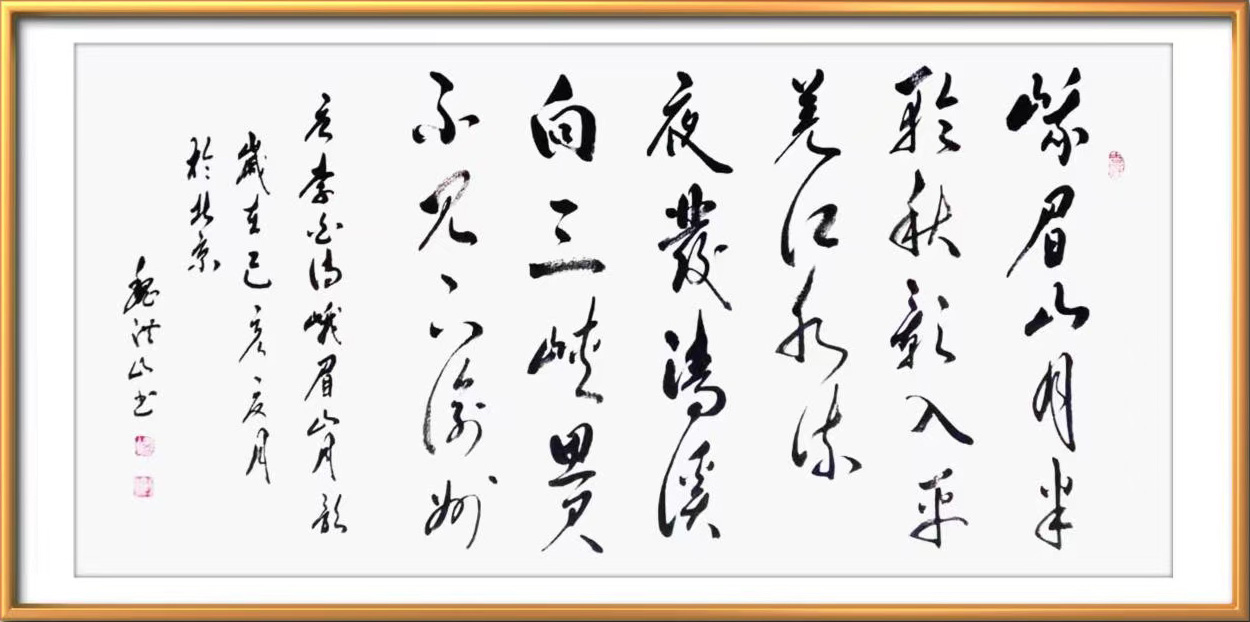 峨眉山月半
輪秋影入平
羌江水流
夜發清溪
向三峽思君
不見下渝州
李白詩峨眉山月歌
歲在己亥夏月
於北京
魏洪山书